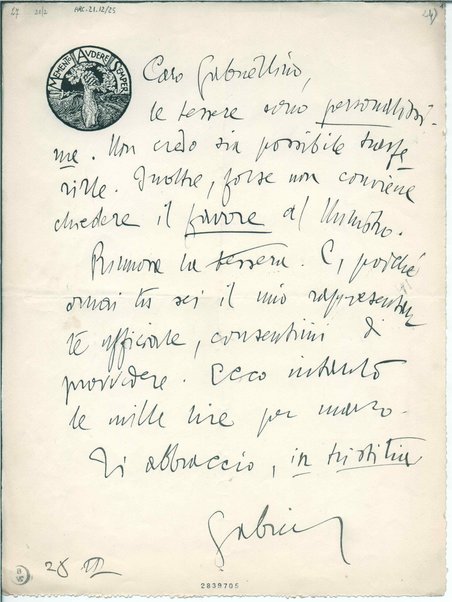 27 20/2 ARC. 21. 12/25
MEMENTO AVDERE SEMPER
Caro Gabriellino,
le tessere sono personalissi-
me. Non credo sia possibile trasfe
rirle. Inoltre, forse non conviene
chiedere il favore al Ministro.
la tessera. E, poiché
ormai tu sei il mio rappresentan
te officiale, consentimi di
provvedere. Ecco intanto
le mille lire per marzo.
Ti abbraccio, in tristitia
Gabriel
28 III
2839705